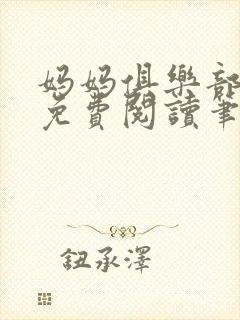 媽媽俱樂部
免費閱讀筆
鈕承澤